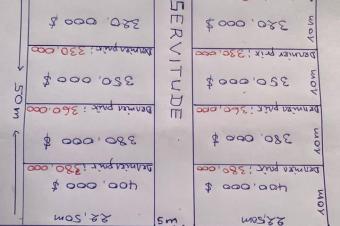 22,50m
5m
22,50m
400.000 $
400.000 $
Dernier prix : 380.000
Dernier prix : 380.000
380.000 $
380.000 $
Dernier prix : 360.000
Dernier prix : 360.000
350.000 $
350.000 $
Dernier prix : 330.000
Dernier prix : 330.000
320.000 $
320.000 $
SERVITUDE
50m